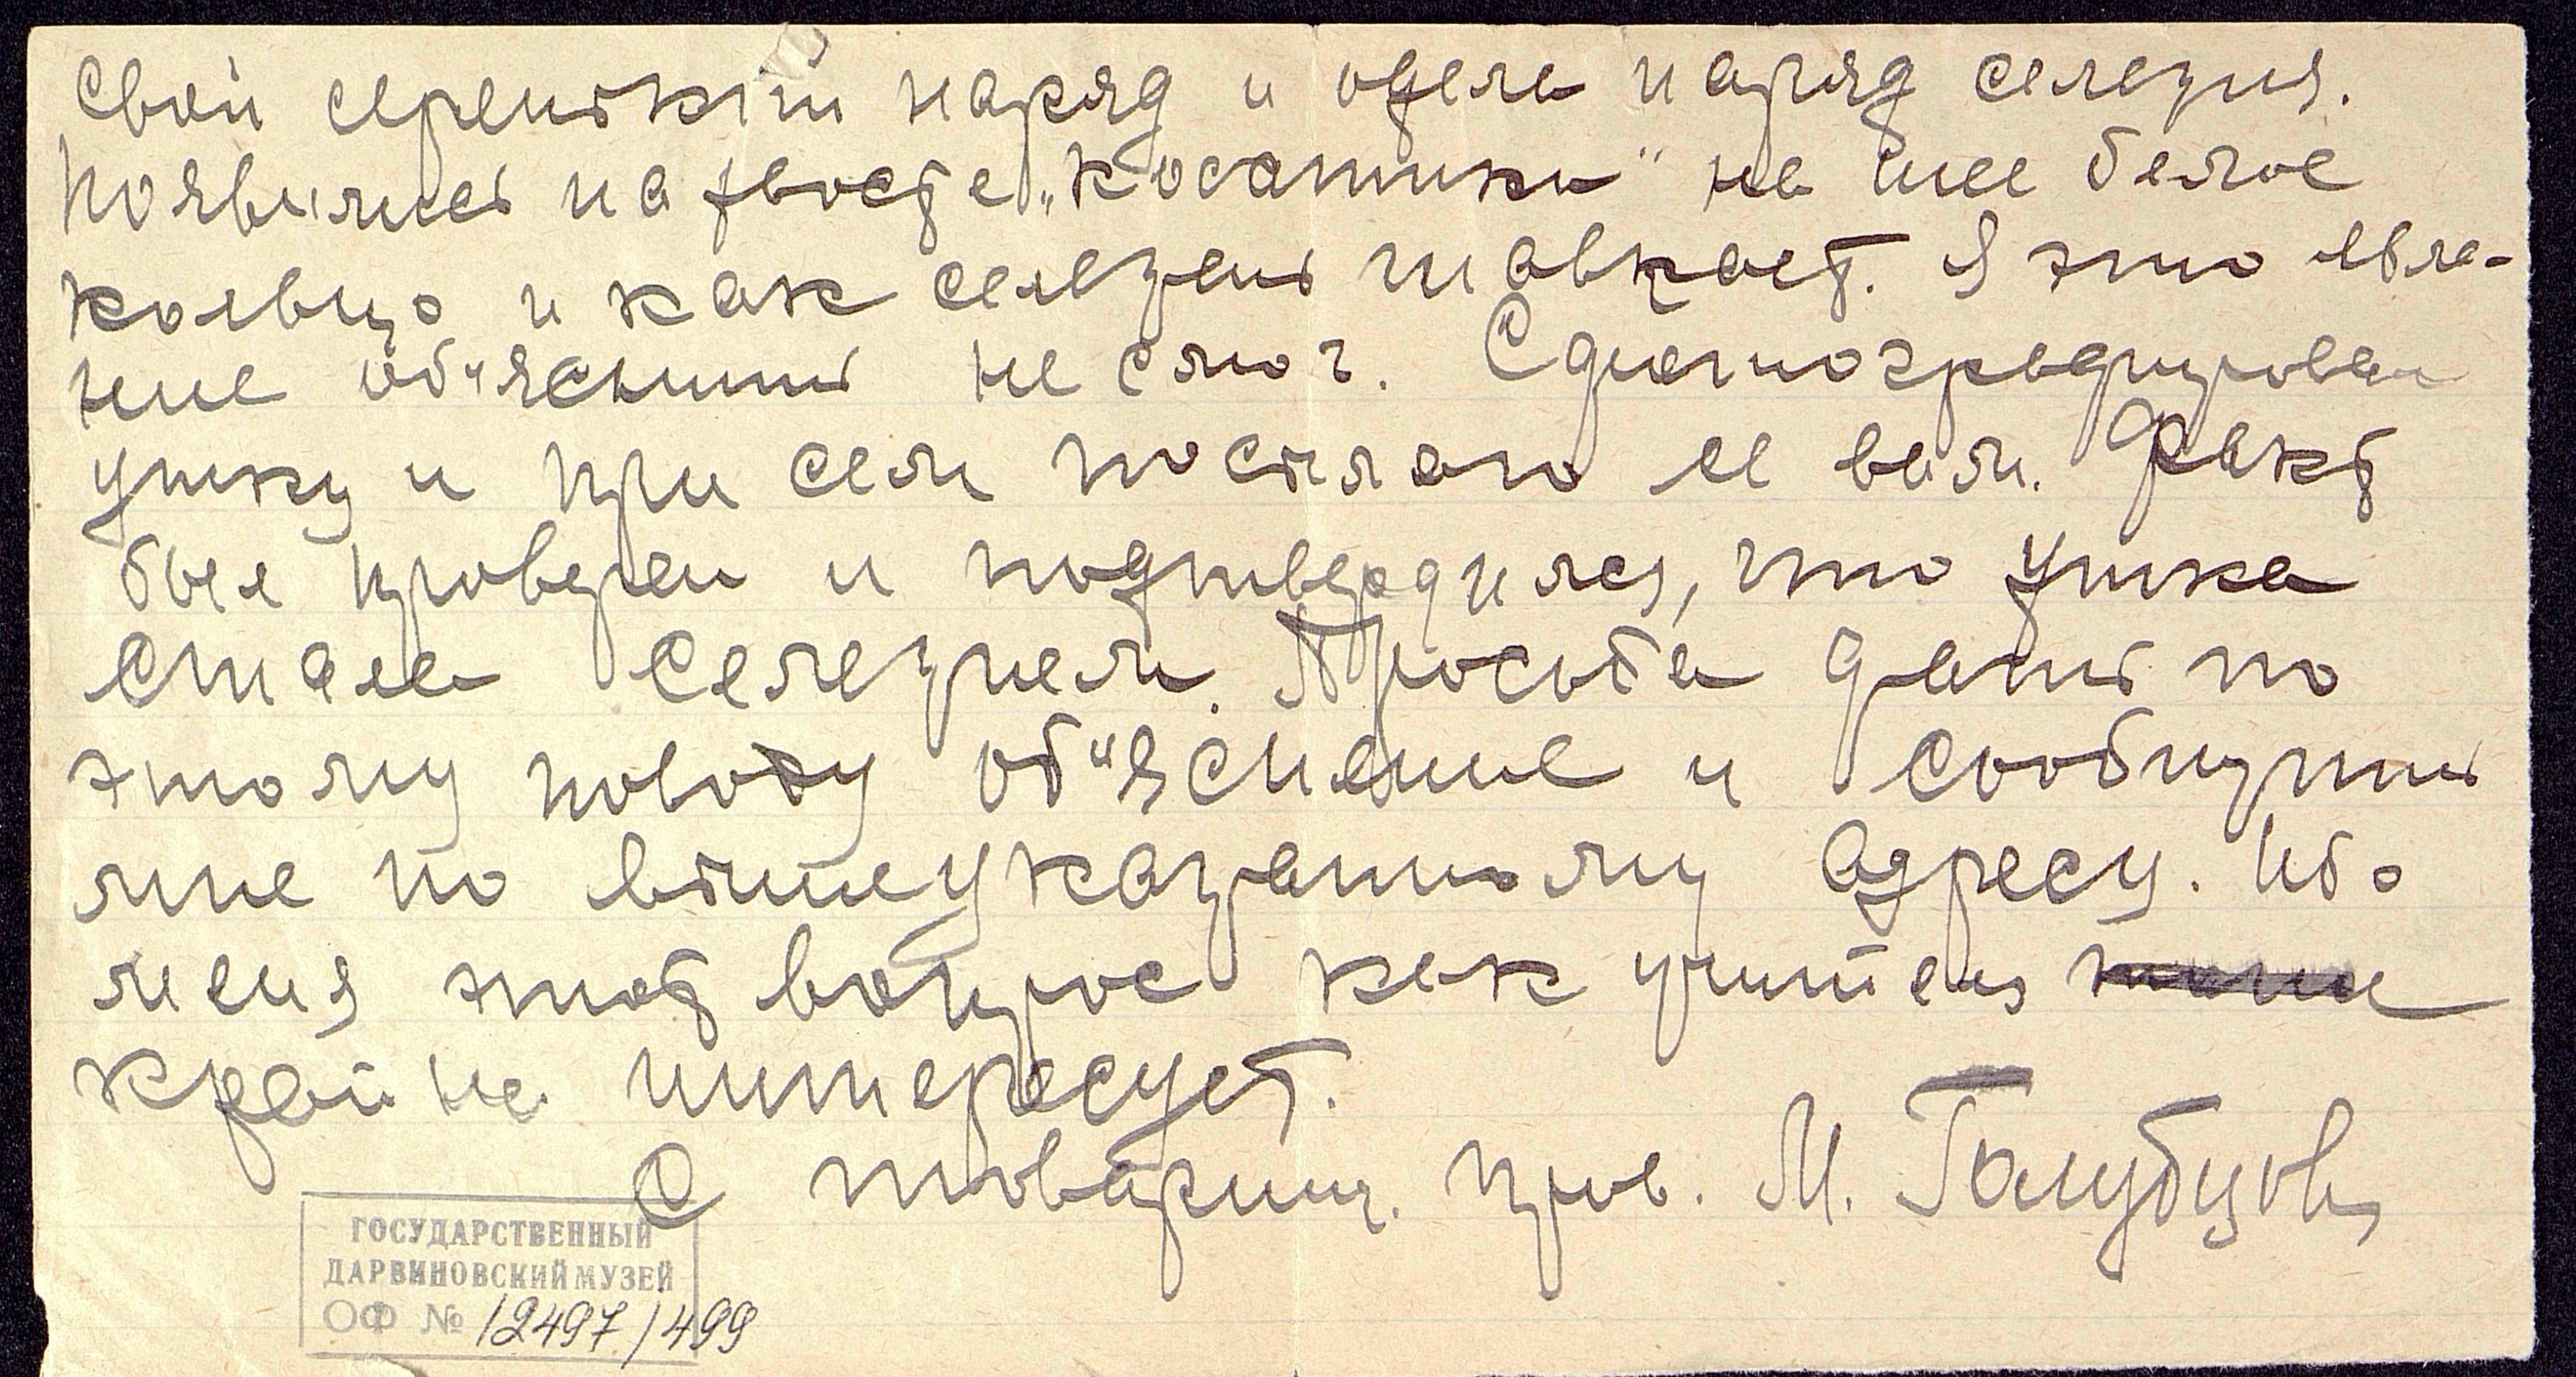 свой серенький наряд и одела наряд селезня.
Появились на хвосте „косатики" на шее белое
кольцо и как селезень шавкает. Я это явле-
ние об"яснить не смог. Сфотографировал
утку и при сем посылаю ее вам. Факт
был проверен и подтвердился, что утка
стала селезнем. Просьба дать по
этому поводу об"яснение и сообщить
мне по вышеуказанному адресу. Ибо
меня этот вопрос как учителя
крайне интересует.
С товарищ. прив. М. Голубцов
ГОСУДАРСТВЕННЫЙ
ДАРВИНОВСКИЙ МУЗЕЙ
ОФ № 12497/499